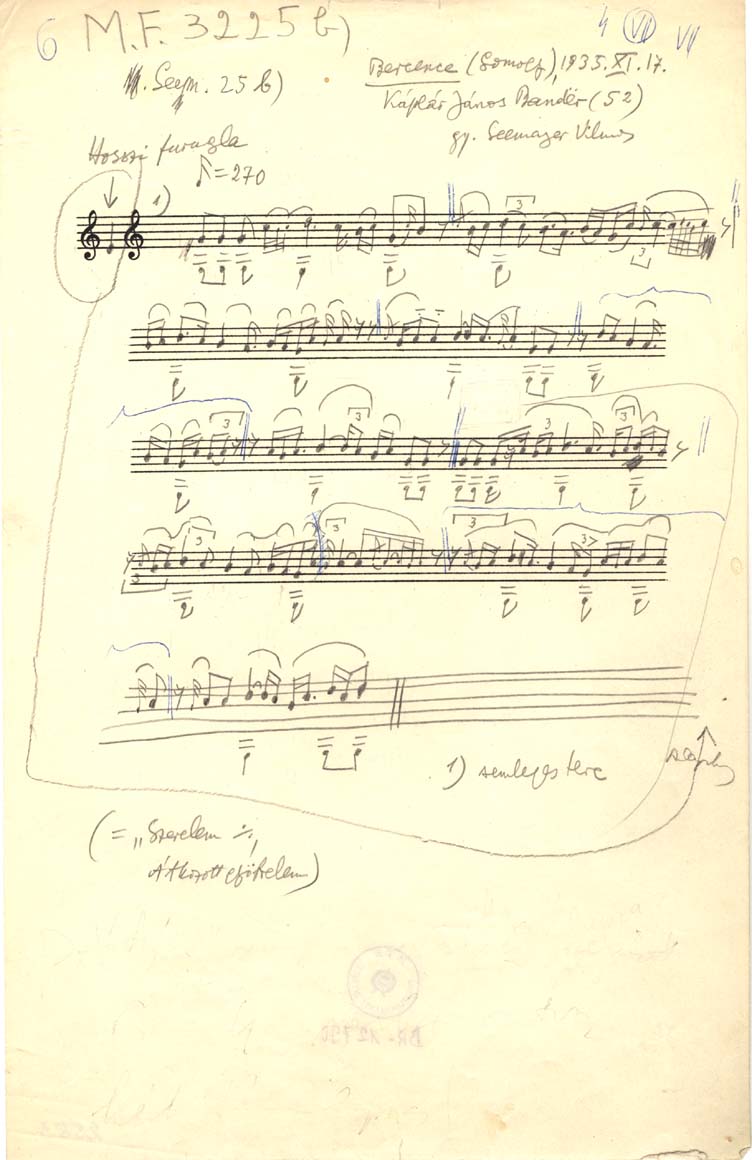 6 M.F. 3225 b)
4 VII VI
Seem. 25 b)
Bercence (Somogy), 1935. XI. 17.
Káplár János Bandër (52)
gy. Seemayer Vilmos
Hosszi furugla
♪ = 270
1)
3
3
3
3
3
3
3
3
3
3
3
3
1) semleges terc
(= „Szerelem ⁒,
Átkozott gyötrelem)